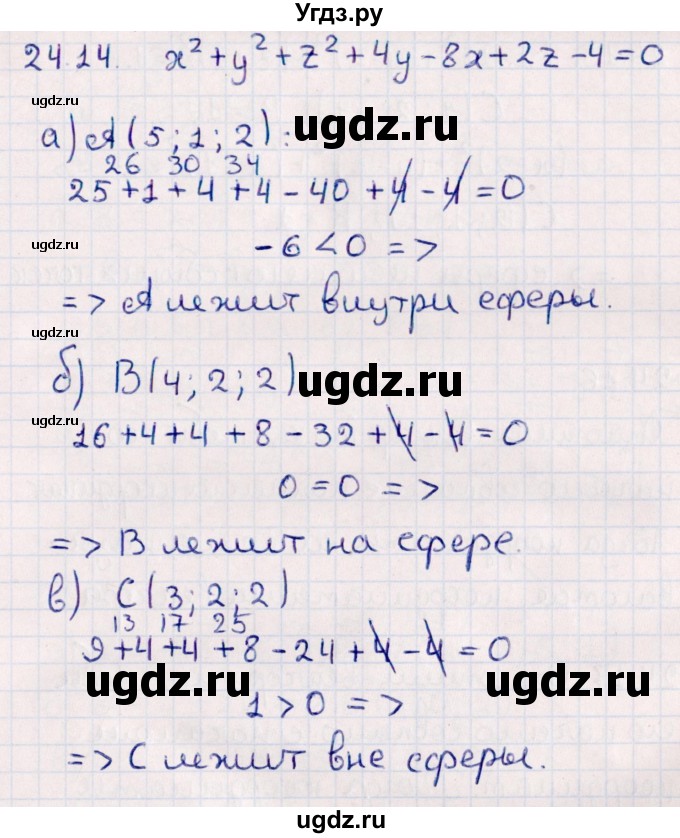 Угдз.ру
24.14. x² + y² + z² + 4y - 8x + 2z - 4 = 0
ugdz.ru
ugdz.ru
а) A(5; 1; 2):
26 30 34
25 + 1 + 4 + 4 - 40 + 4 - 4 = 0
ugdz.ru
-6 < 0 =>
=> A лежит внутри сферы.
ugdz.ru
б) B(4; 2; 2)
ugdz.ru
ugdz.ru
16 + 4 + 4 + 8 - 32 + 4 - 4 = 0
0 = 0 =>
=> B лежит на сфере.
в) C(3; 2; 2)
13 17 25
9 + 4 + 4 + 8 - 24 + 4 - 4 = 0
ugdz.ru
ugdz.ru
1 > 0 =>
=> C лежит вне сферы.
ugdz.ru
ugdz.ru